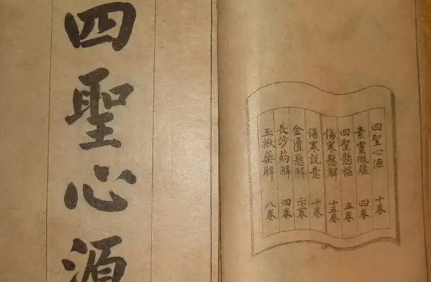 四聖心源
四聖心源 十卷
素靈微蘊 四卷
四聖懸樞 五卷
傷寒懸解 十五卷
傷寒說意 十卷
金匱懸解 二十二卷
長沙藥解 四卷
玉楸藥解 八卷